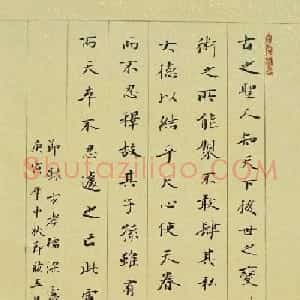 古之聖人知天下後世之變
術之所能製不敢肆其私
大德以結乎天心使天眷
而不忍釋故其子孫雖有
而天卒不忍遽之亡此慮
節錄方孝孺深慮
庚寅年中秋節後五
Shufaziliao.com